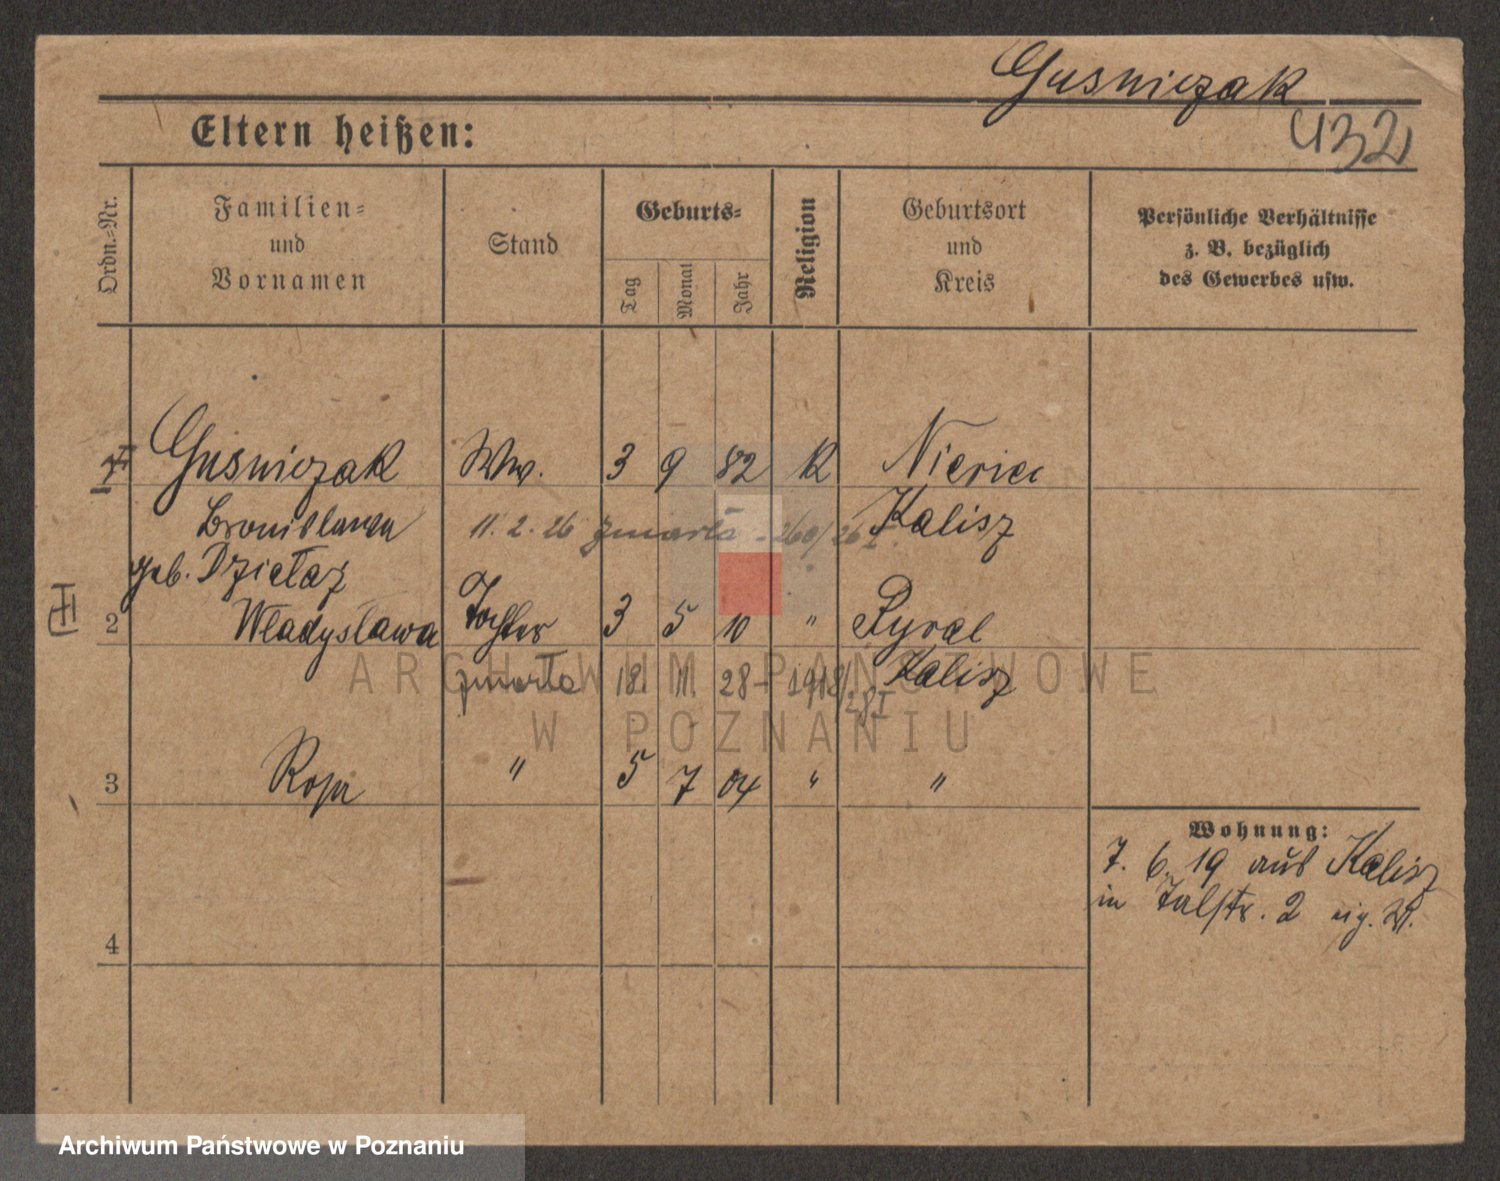 Gusniczak
432
Eltern heißen:
Ordn.-Nr.
Familien-
und
Vornamen
Stand
Geburts-
Tag
Monat
Jahr
Religion
Geburtsort
und
Kreis
Persönliche Verhältnisse
z. B. bezüglich
des Gewerbes usw.
1 Gusniczak Ww. 3 9 82 K
Bronislawa 11. 2. 26 zmarła - 260/26 I Kalisz
geb. Dziełaz
2 Władysława Tochter 3 5 10 "
zmarła 18. 11. 28 - 1918/28 I Kalisz
3 Roza " 5 7 04 " "
4
Wohnung:
7. 6. 19 aus Kalisz
in Talstr. 2 eig. W.
ARCHIWUM PAŃSTWOWE
W POZNANIU
Archiwum Państwowe w Poznaniu